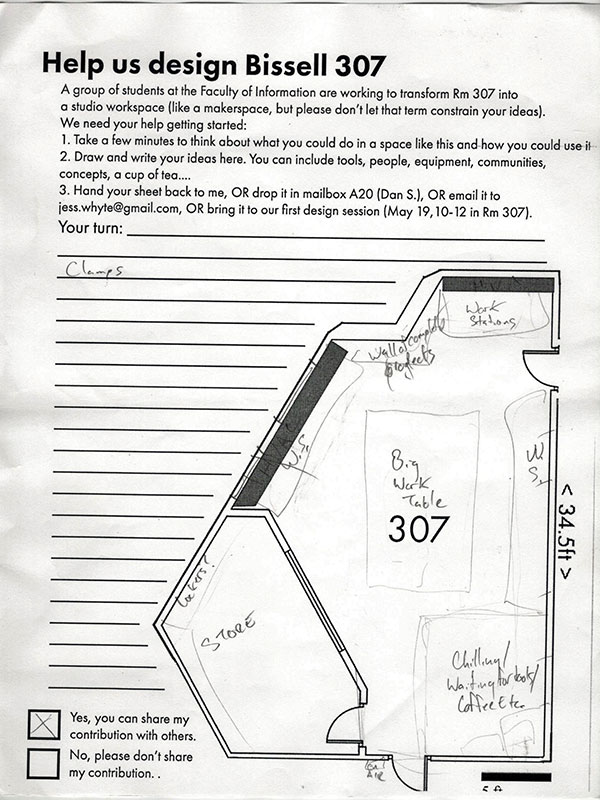 Help us design Bissell 307
A group of students at the Faculty of Information are working to transform Rm 307 into
a studio workspace (like a makerspace, but please don't let that term constrain your ideas).
We need your help getting started:
1. Take a few minutes to think about what you could do in a space like this and how you could use it
2. Draw and write your ideas here. You can include tools, people, equipment, communities,
concepts, a cup of tea....
3. Hand your sheet back to me, OR drop it in mailbox A20 (Dan S.), OR email it to
jess.whyte@gmail.com, OR bring it to our first design session (May 19, 10-12 in Rm 307).
Your turn:
Clamps
Work
Stations
Wall of complete
projects
W.S.
Big
Work
Table
W.
S.
307
< 34.5ft >
Lockers?
STORE
Chilling/
Waiting for tools/
Coffee Etc.
Yes, you can share my
contribution with others.
No, please don't share
my contribution. .
5 ft